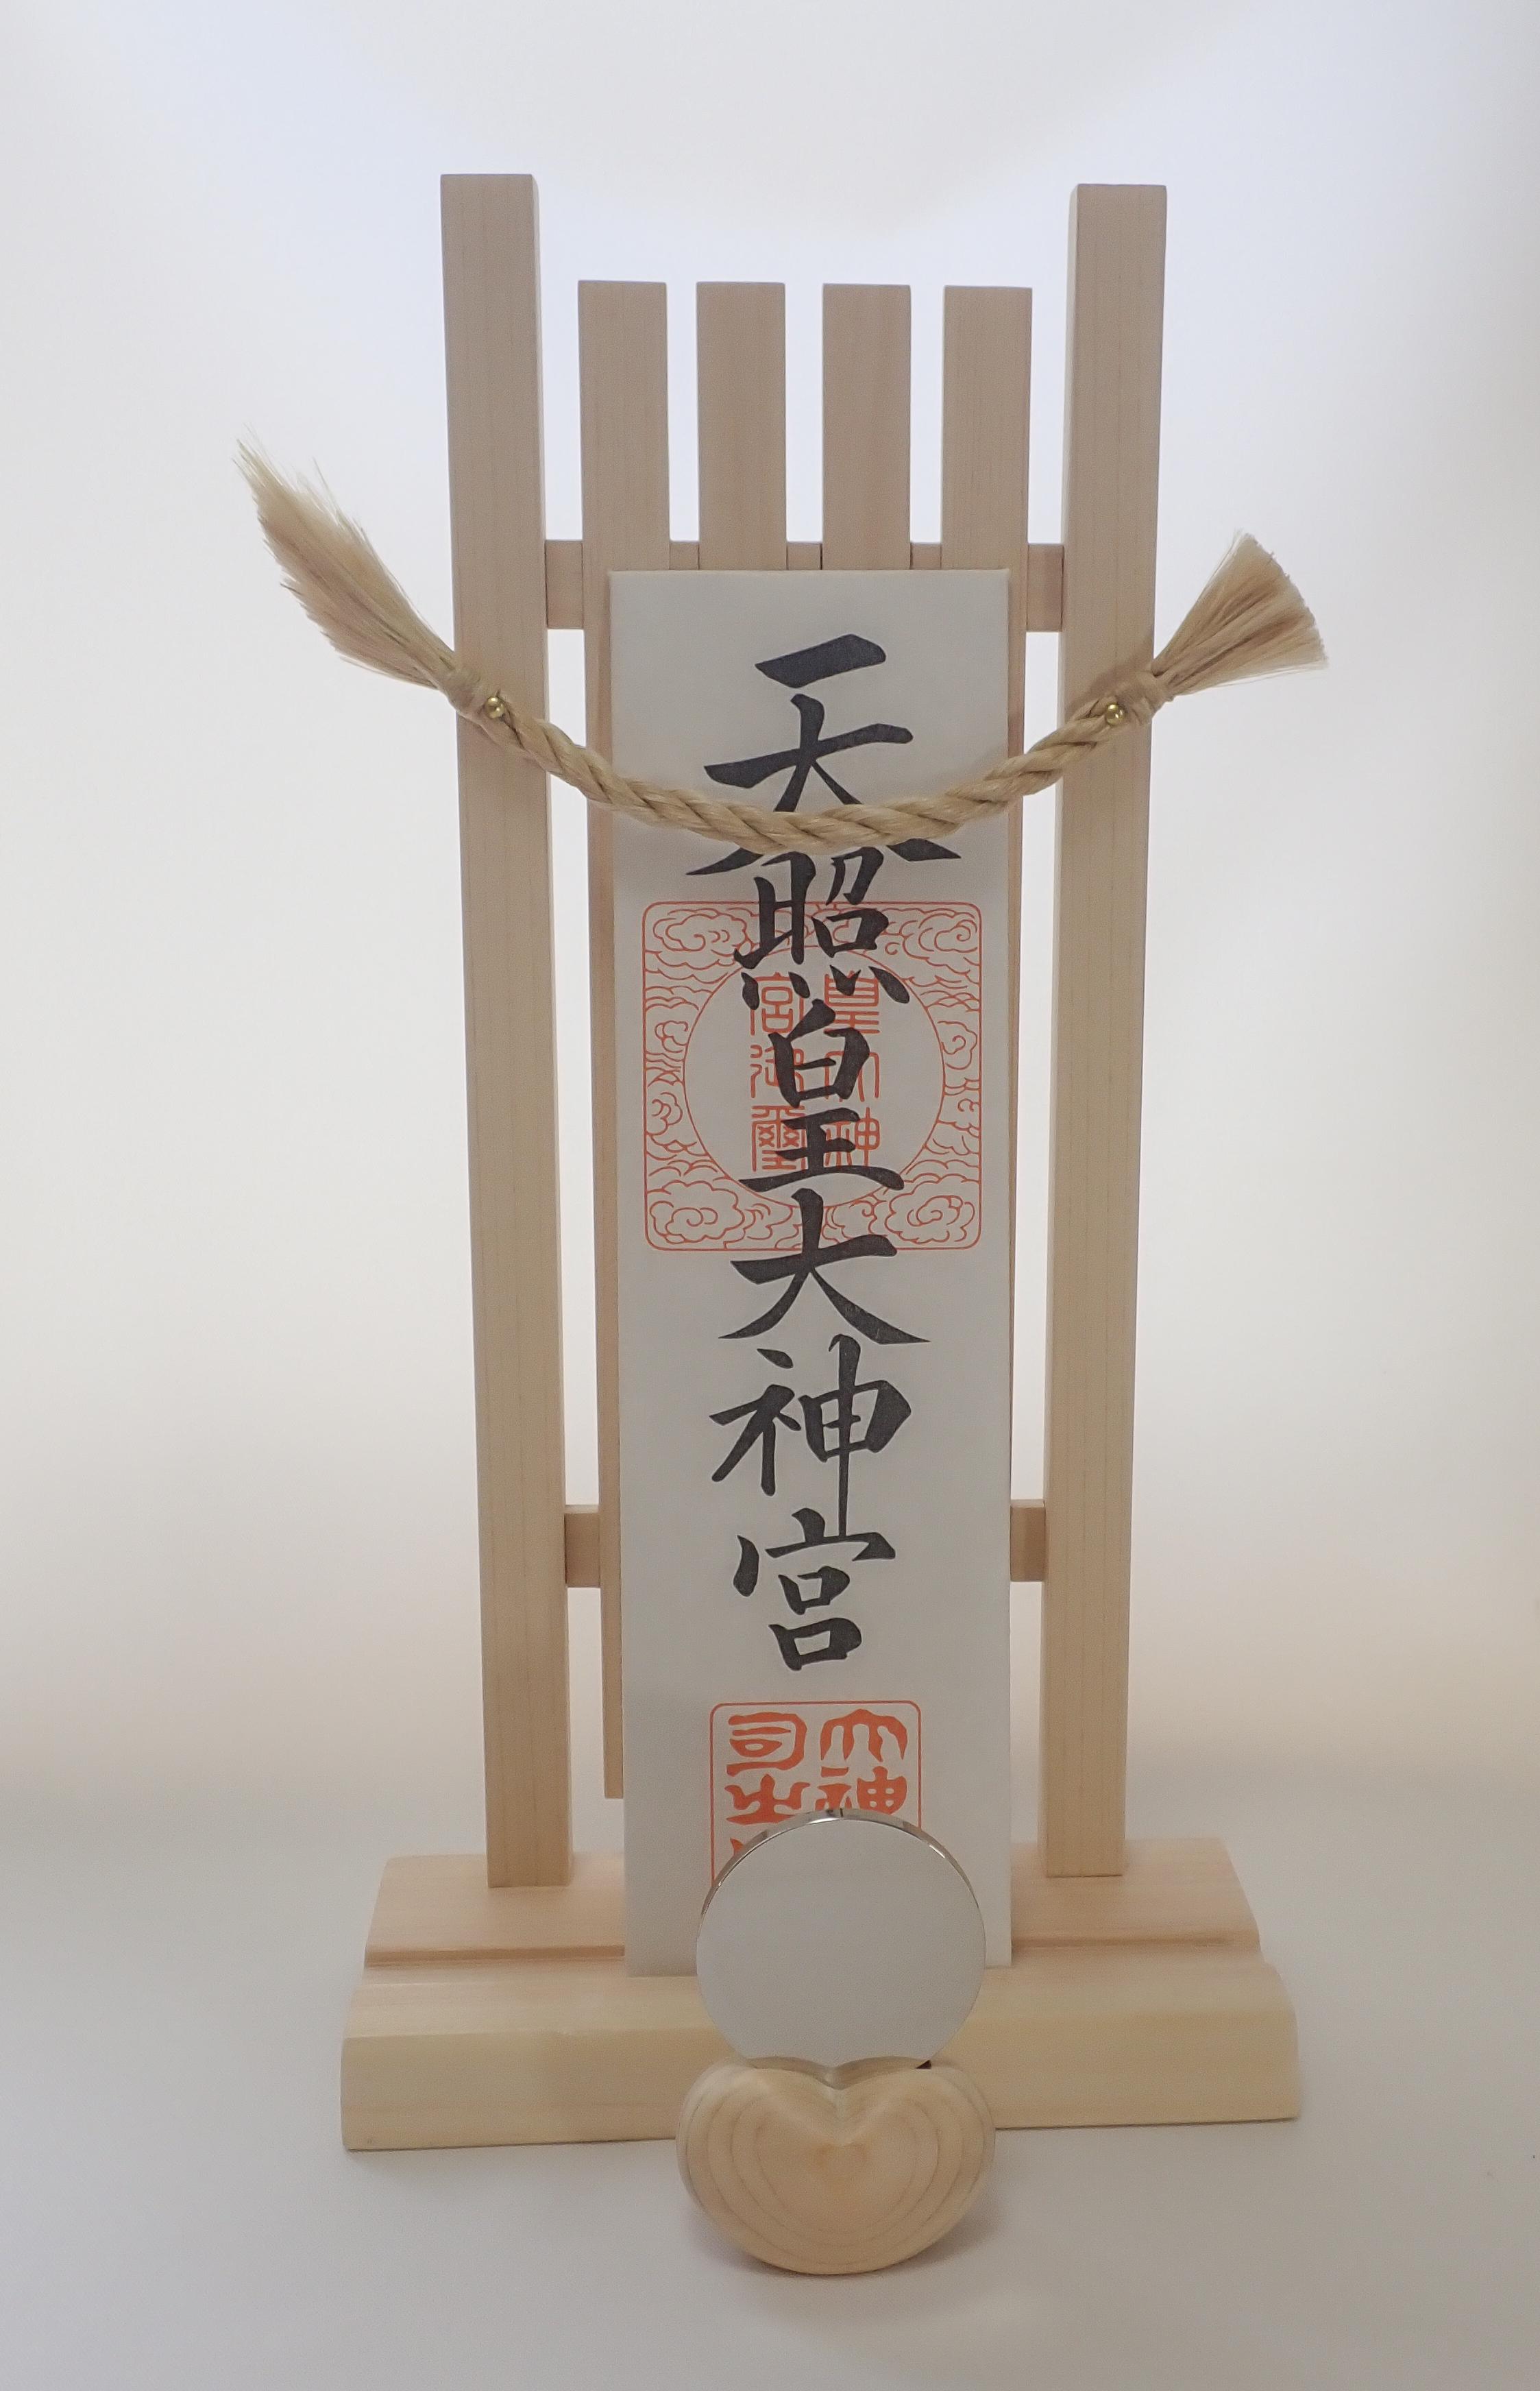 天照皇大神宮
皇大神
宮御璽
大神
司之